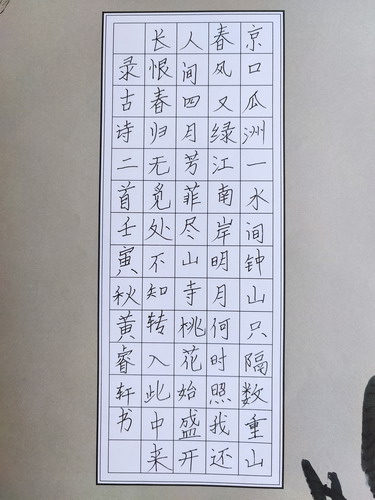 京口瓜洲一水间钟山只隔数重山
春风又绿江南岸明月何时照我还
人间四月芳菲尽山寺桃花始盛开
长恨春归无觅处不知转入此中来
录古诗二首壬寅秋黄睿轩书